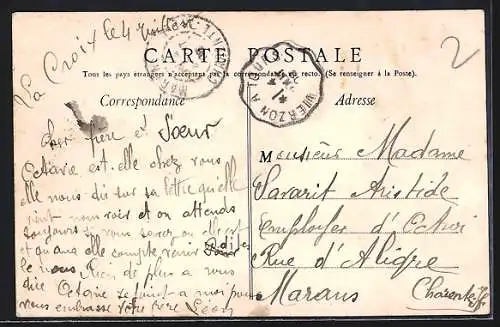 La Croix le 4 juillet
CARTE POSTALE
Tous les pays étrangers n'acceptent pas la correspondance au recto. (Se renseigner à la Poste).
Correspondance
Adresse
2
VIERZON A TOURS
Cher frère et Sœur
Octavie est-elle chez vous
elle nous dis sur sa lettre qu'elle
vient nous voir et on attends
toujours si vous savez ou elle est
et quand elle compte venir
le nous. Rien de plus a vous
dire Octavie se joint a moi pour
vous embrasse votre frère Léon
Monsieur Madame
Savarit Aristide
Employer d'Octroi
Rue d'Aligre
Marans Charente Ifre